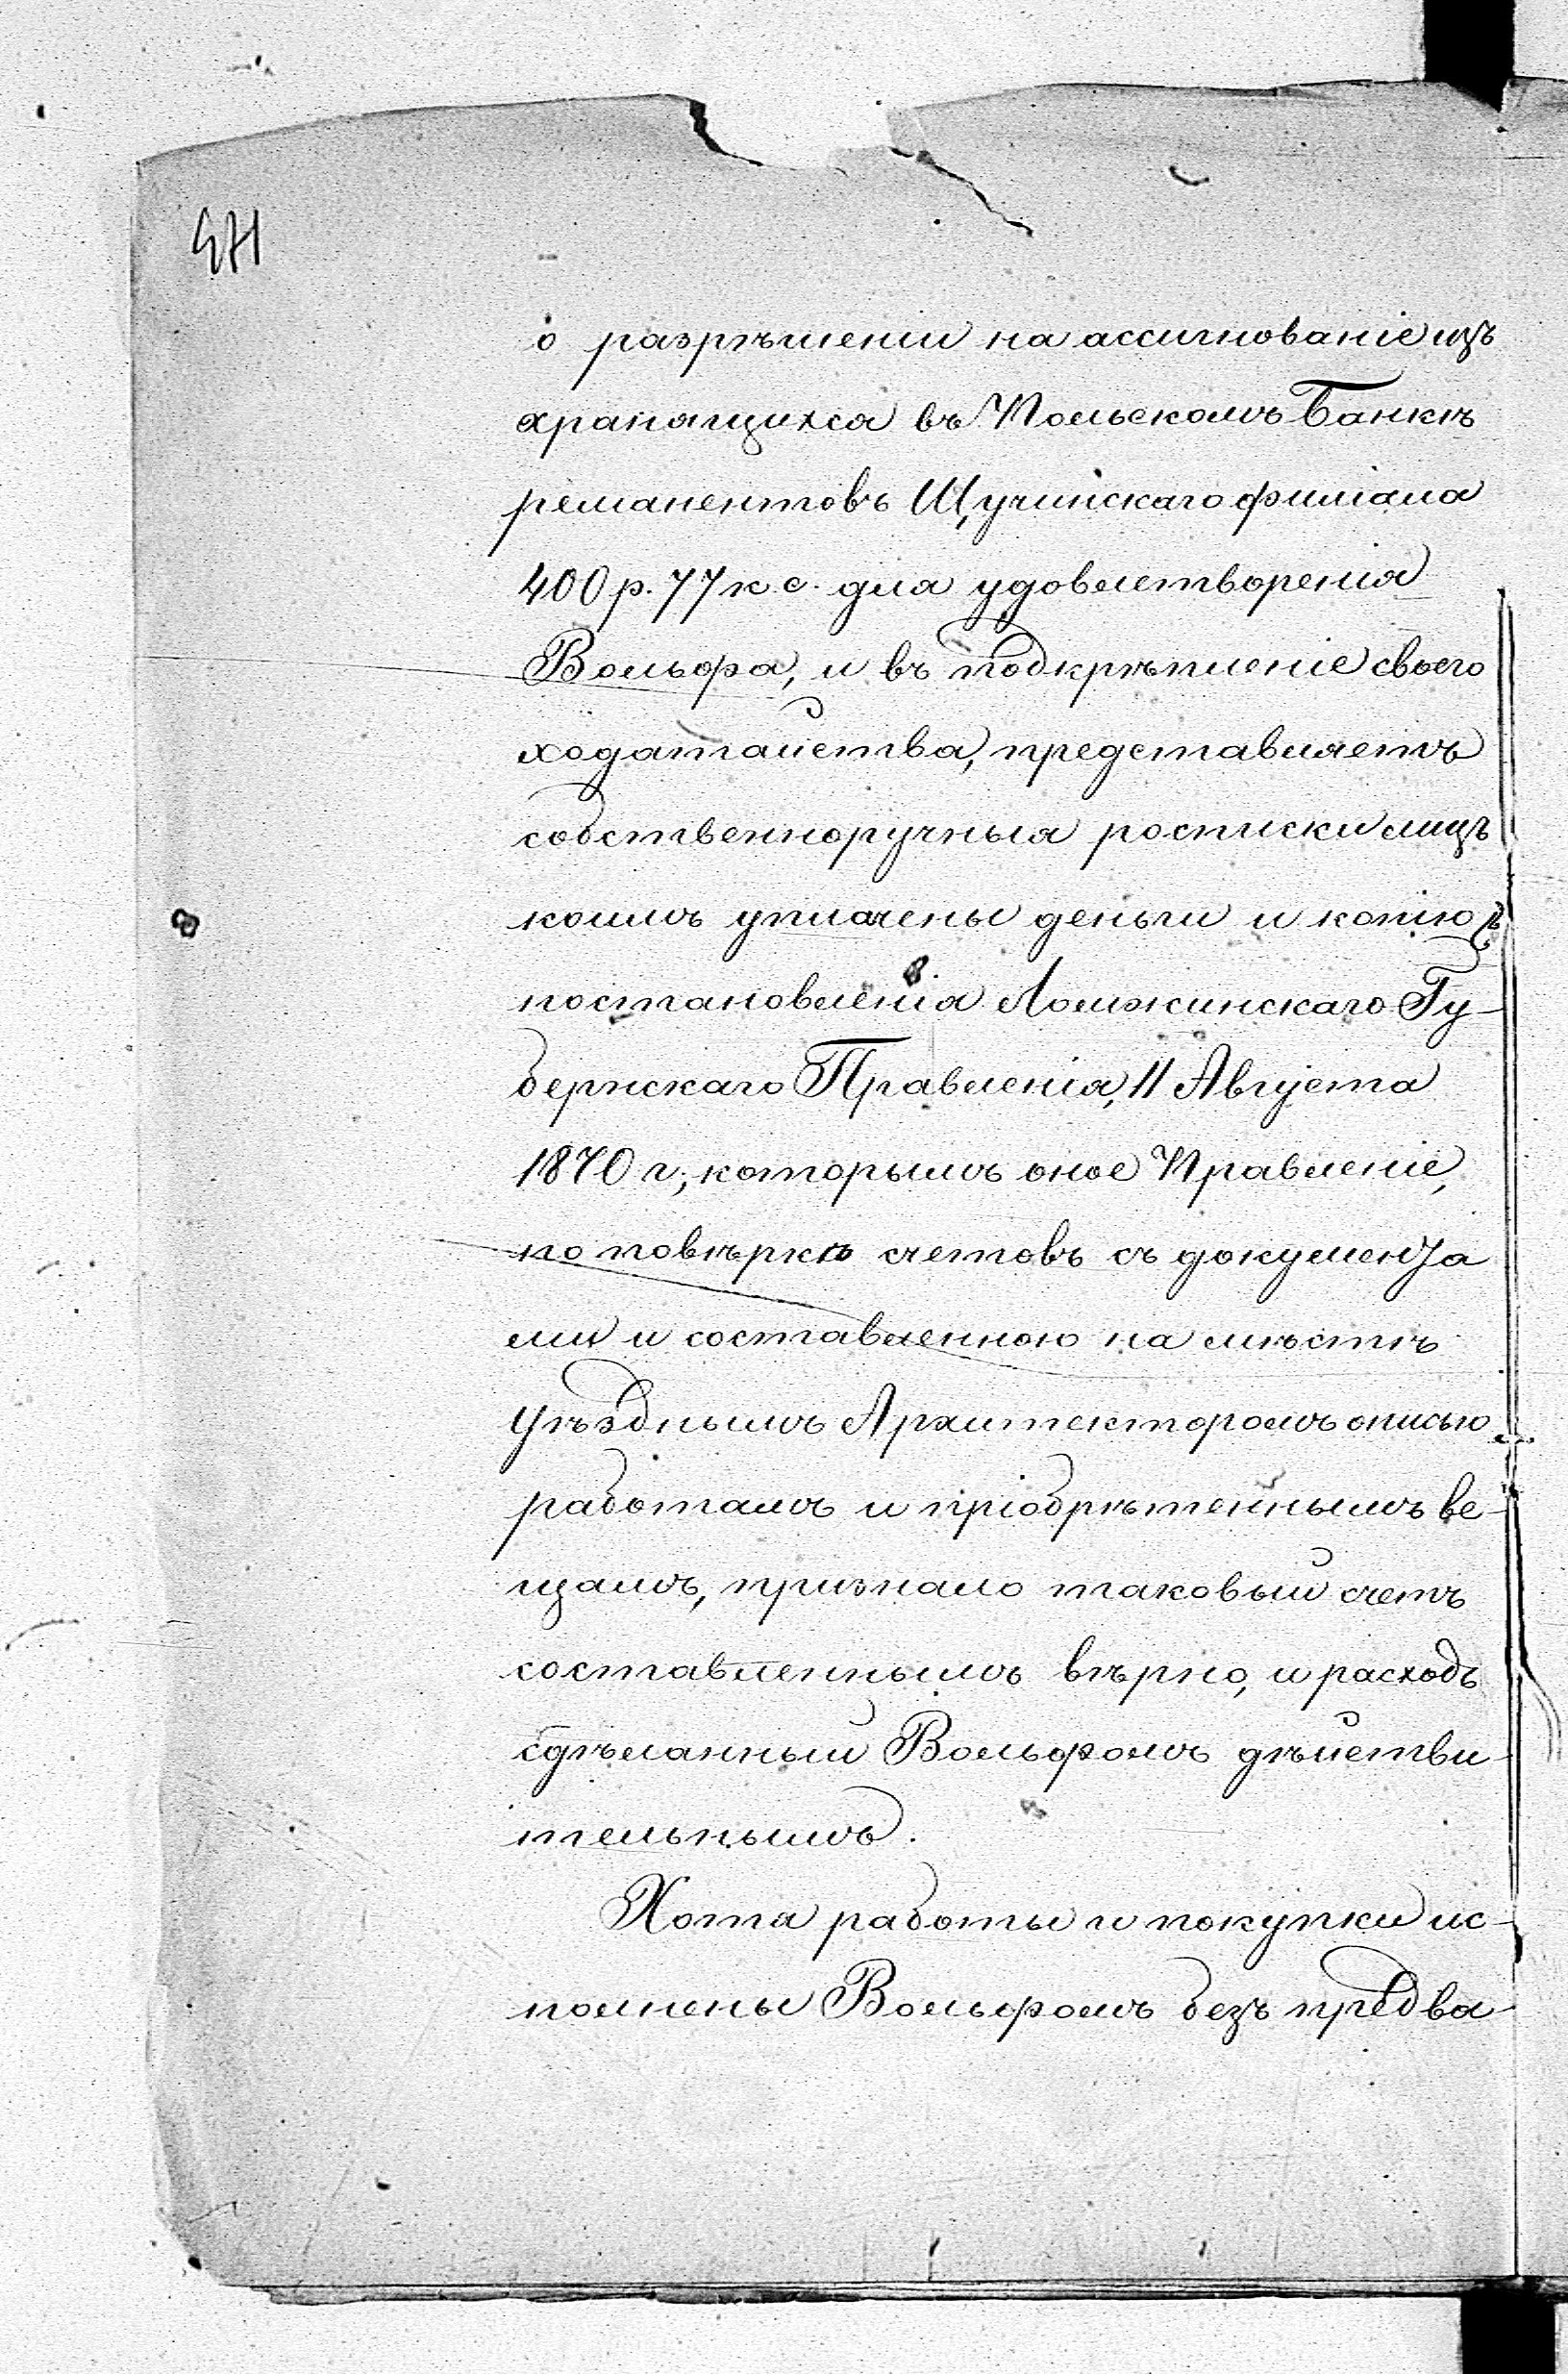 471
о разрѣшеніи на ассигнованіе изъ
хранящихся въ Польскомъ Банкѣ
ремонентовъ Щучинскаго филіала
400 р. 77 к. с. для удовлетворенія
Вольфа, и въ подкрѣпленіе своего
ходатайства, представляетъ
собственноручныя росписки лицъ
коимъ уплачены деньги и копію
постановленія Ломжинскаго Гу-
бернскаго Правленія, 11 Августа
1870 г., которымъ оное Правленіе,
по повѣркѣ счетовъ съ документа
ми и составленною на мѣстѣ
Уѣзднымъ Архитекторомъ описью
работамъ и пріобрѣтеннымъ ве-
щамъ, признало таковый счетъ
составленнымъ вѣрно, и расходъ
сдѣланный Вольфомъ дѣйстви-
тельнымъ.
Хотя работы и покупки ис-
полнены Вольфомъ безъ предва-